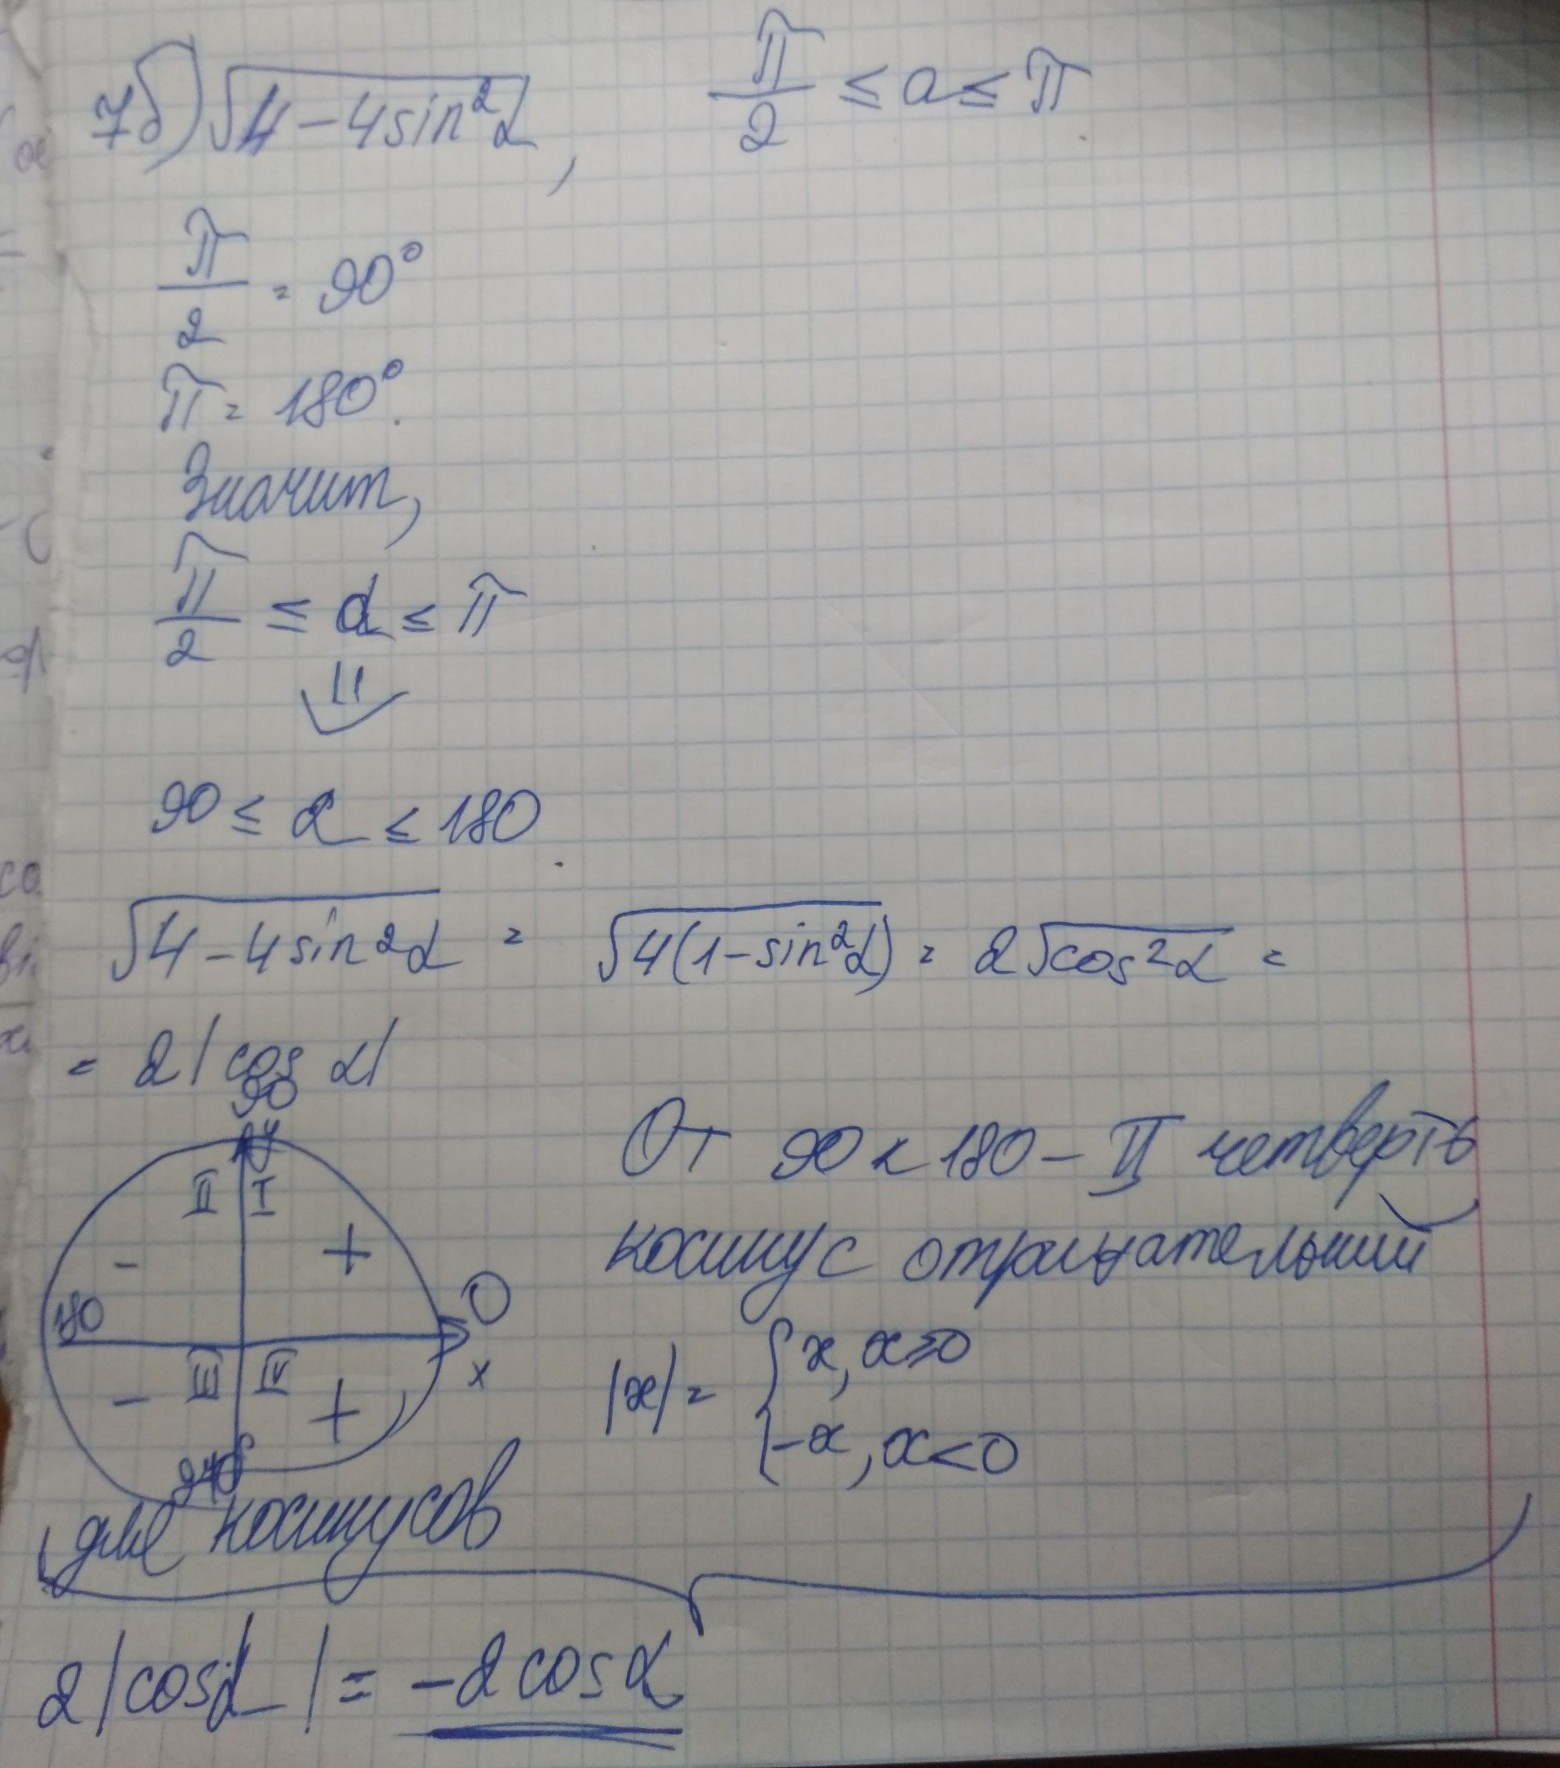 7б) √4-4sin²α, π/2 ≤ a ≤ π.
π/2 = 90°
π = 180°.
Значит,
π/2 ≤ α ≤ π
⇓
90 ≤ α ≤ 180
√4-4sin²α = √4(1-sin²α) = 2√cos²α =
= 2|cos α|
90
y
II I
- +
180 0
x
III IV
- +
270
для косинусов
От 90 к 180 - II четверть
косинус отрицательный
|x| = { x, x≥0
-x, x<0
2|cosα| = -2cosα